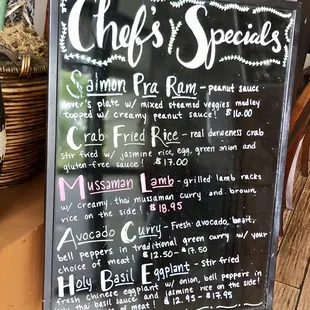 Chef's Specials
Salmon Pra Ram - peanut sauce
lover's plate w/ mixed steamed veggies medley
topped w/ creamy peanut sauce! $16.00
Crab Fried Rice - real dungeness crab
stir fried w/ jasmine rice, egg, green onion and
yellow onion. $17.00
Mussaman Lamb - grilled lamb racks
w/ creamy thai mussaman curry and brown
rice on the side! $18.95
Avocado Curry - Fresh avocado, basil,
bell peppers in traditional green curry w/ your
choice of meat! $12.50 - $17.50
Holy Basil Eggplant - Stir fried
fresh chinese eggplant w/ onion, bell peppers in
thai basil sauce and jasmine rice on the side!
of meat! $12.95 - $17.95